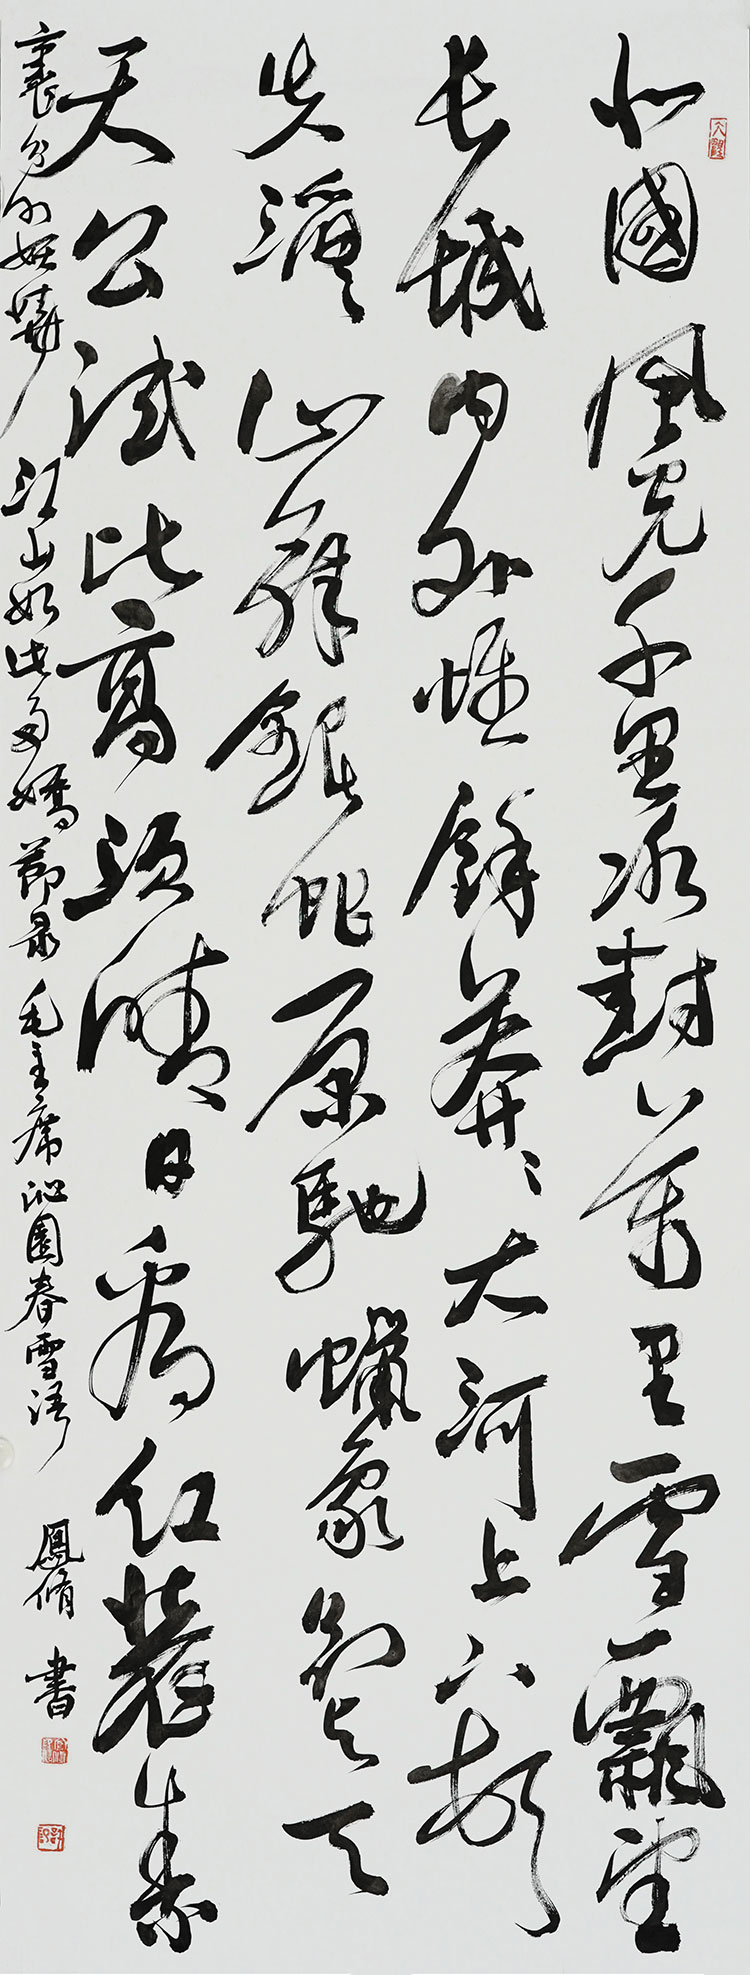 北國風光千里冰封萬里雪飄望
长城内外惟餘莽〻大河上下頓
失滔〻山舞銀蛇原馳蠟象欲与天
天公試比高須晴日看红裝素
裹分外妖嬈江山如此多嬌節录毛主席沁園春雪詞
鳳脩書